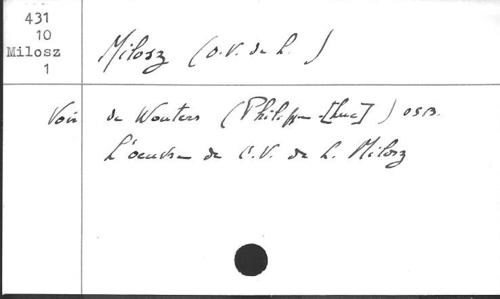 431
10
Milosz
1
Milosz (O.V. de L.)
Voir de Wouters (Philippe-[Luc]) OSB.
L'oeuvre de O.V. de L. Milosz